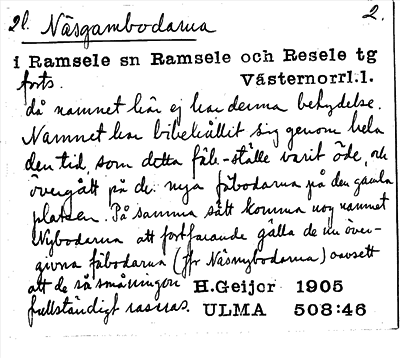 2l. Näsgambodarna 2.
i Ramsele sn Ramsele och Resele tg
forts. Västernorrl.l.
då namnet här ej har denna betydelse.
Namnet har bibehållit sig genom hela
den tid, som detta fäb.-ställe varit öde, och
övergått på de nya fäbodarna på den gamla
platsen. På samma sätt komma nog namnet
Nybodarna att fortfarande gälla de nu över-
givna fäbodarna (jfr Näsnybodarna) oavsett
att de så småningom H.Geijer 1905
fullständigt rasas. ULMA 508:46